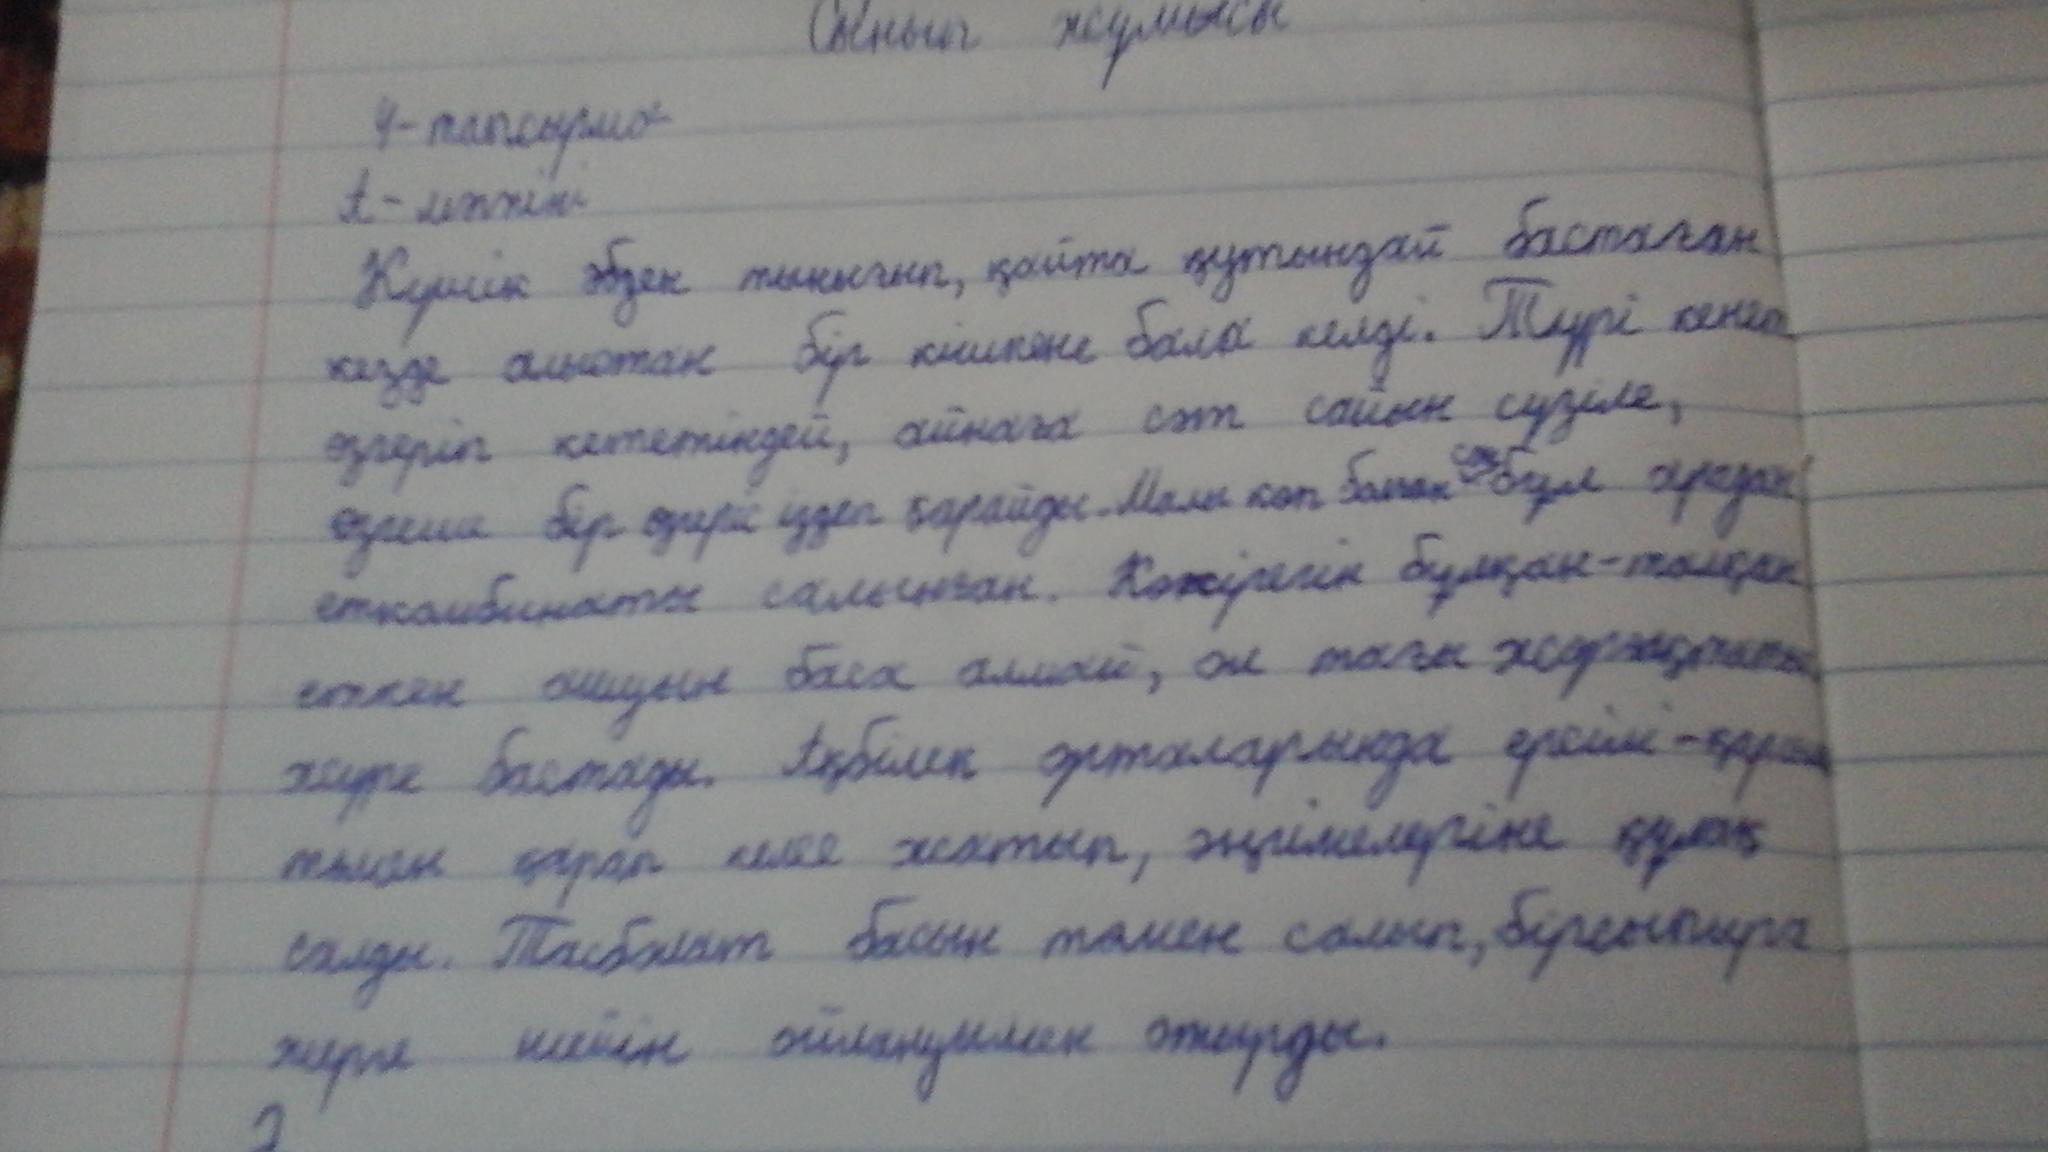 Сынып жұмысы
4-тапсырма
А-мәтіні
Күшік әбден тынығып, қайта құтындай бастаған
кезде алыстан бір кішкене бала келді. Түрі кенет
өзгеріп кететіндей, айнаға сәт сайын сүзіле,
өзгеше бір өзгеріс іздеп қарайды. Малы көп болған соң бұл арадан
еткомбинаты салынған. Көкірегін бұлқан-талқан
еткен ашуын баса алмай, ол тағы
жүре бастады. Ақбілек орталарында ерсілі-қарсы
қарап келе жатып, әңгімелеріне құлақ
салды. Тасболат басын төмен салып, бірсыпыра
жерге шейін ойланумен отырды.
2